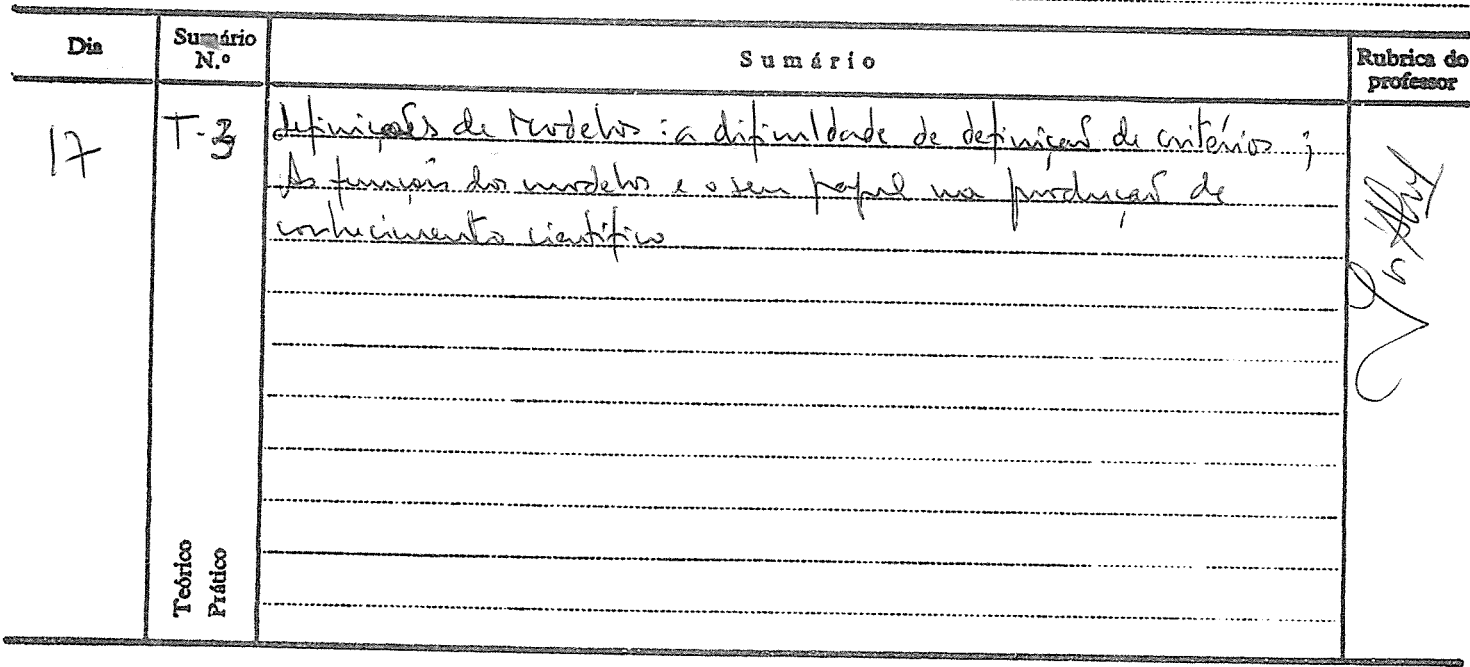 Dia
Sumário N.º
Sumário
Rubrica do professor
17
T-3
definições de Modelos : a dificuldade de definição de critérios ;
As funções dos modelos e o seu papel na produção de
conhecimento científico
Teórico
Prático